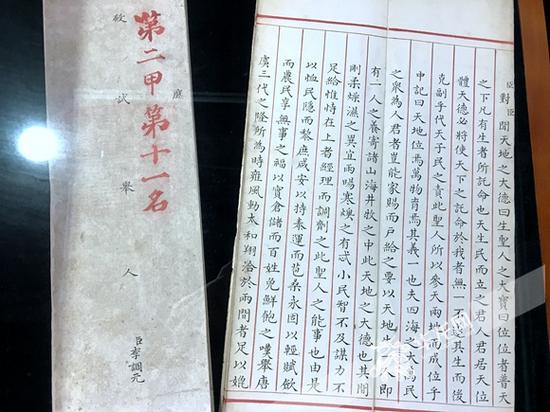 臣對臣聞天地之大德曰生聖人之大寶曰位位者普天
之下凡有生者所託命也天生民而立之君人君居天位
體天德必將使天下之託命於我者無一不遂其生而後
克副乎代天子民之責此聖人所以參天兩地而成位乎
中記曰天地位焉萬物育焉其義一也夫四海之大萬民
之衆為人君者豈能家賜而戶給之要以天地生即
有一人之養寄諸山海井牧之中此天地之大德也其間
剛柔燥濕之異宜雨暘寒燠之有忒小民智不及謀力不
足給惟恃在上者經理而調劑之此聖人之能事也由是
以恤民隱而黎庶咸安以持泰運而苞桑永固以輕賦斂
而農民享無事之福以實倉儲而百姓免鮮飽之嘆舉唐
虞三代之隆所為時雍風動太和翔洽於兩間者足以媲
應
試舉人
臣李調元
第二甲第十一名